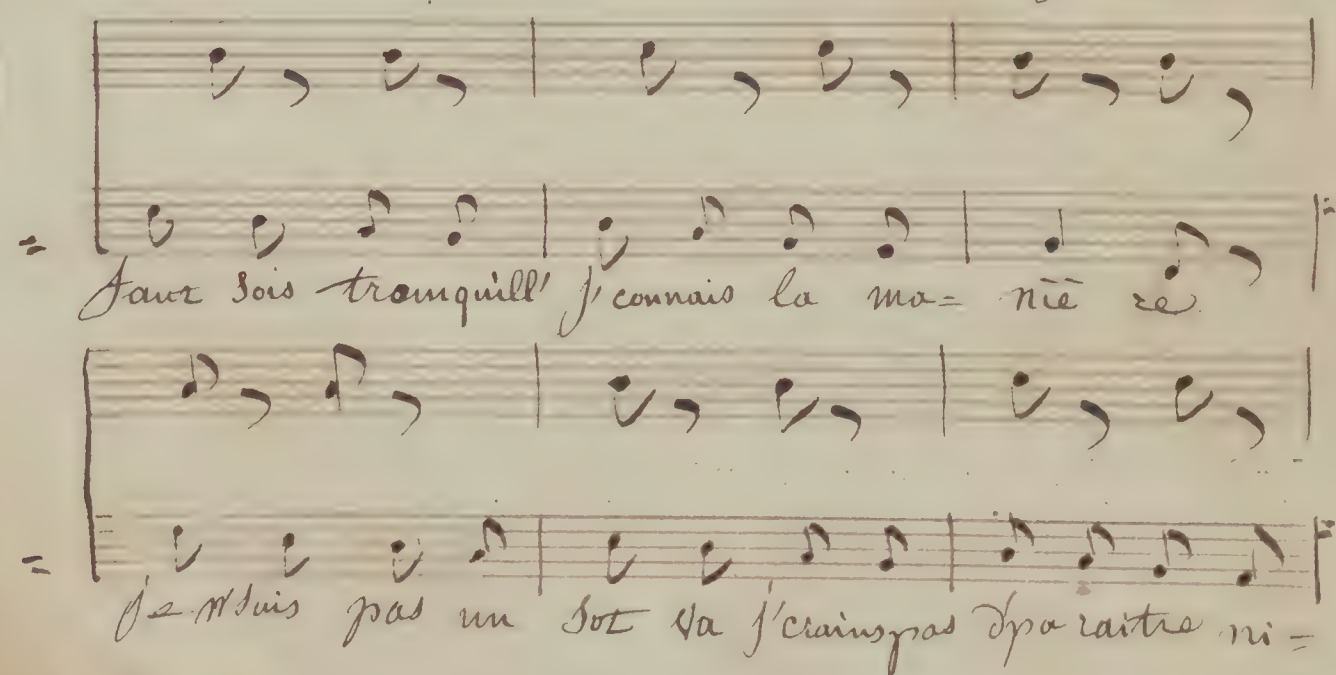 faut sois tranquill' j'connais la ma= niè re
je n'suis pas un sot va j'crains pas d'pa raitre ni=